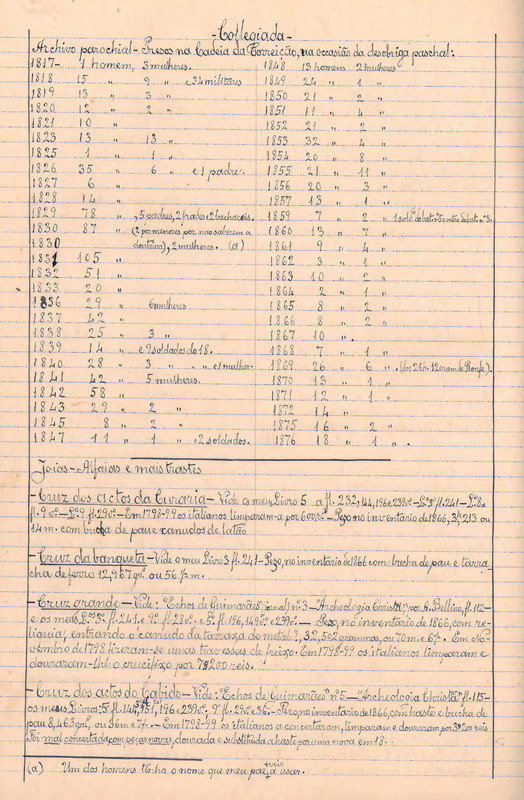 - Collegiada -
Archivo parochial - Presos na Cadeia da Correição, na occasião da desobriga paschal:
1817 - 1 homem, 3 mulheres.
1818 15 " 2 " e 34 militares
1819 13 " 3 "
1820 12 " 2 "
1821 10 "
1823 13 " 13 "
1825 1 " 1 "
1826 35 " 6 " e 1 padre.
1827 6 "
1828 14 "
1829 78 " , 5 padres, 2 frades e 2 bachareis.
1830 87 " (2 por menores por não saberem a
1830 doutrina), 2 mulheres. (a)
1831 105 "
1832 51 "
1833 20 "
1836 29 " 6 mulheres
1837 42 "
1838 25 " 3 "
1839 14 " e 9 soldados do 18.
1840 28 " 3 " e 1 mulher.
1841 42 " 5 mulheres.
1842 58 "
1843 29 " 2 "
1845 8 " 2 "
1847 11 " 1 " e 2 soldados.
1848 13 homens 2 mulheres
1849 24 " 1 "
1850 21 " 2 "
1851 11 " 4 "
1852 21 " 2 "
1853 32 " 4 "
1854 20 " 8 "
1855 21 " 11 "
1856 20 " 3 "
1857 13 " 1 "
1859 7 " 2 "
1860 13 " 7 "
1861 9 " 4 "
1862 3 " 1 "
1863 10 " 2 "
1864 2 " 1 "
1865 8 " 2 "
1866 8 " 2 "
1867 10 ".
1868 7 " 1 "
1869 26 " 6 ". (dos 26 h. 12 eram de Ronfe).
1870 13 " 1 "
1871 12 " 1 "
1872 14 "
1875 16 " 2 "
1876 18 " 1 ".
Joias - Alfaias e mais trastes
- Cruz dos actos da Curaria - Vide o meu Livro 5 a fl. 232, 144, 196 e 239vº. - Lº 3º fl. 241 - L. 8 a
fl. 9vº - Lº 9 fl. 29vº - Em 1798-99 os italianos limparam-a por 600 rs. - Pezo, no inventario de 1866, 213 ou
14 m. com bucha de pau e canudos de latão
- Cruz da banqueta - Vide o meu Livro 3 fl. 241 - Pezo, no inventario de 1866 com bucha de pau e tarra-
cha de ferro 12,967 grs ou 56 p. m.
- Cruz grande - Vide: "Echos de Guimarães" nº 3 - "Archeologia Christã" por A. Bellino, fl. 112 -
e os meus Lºs 3º fl. 241 e 9º fl. 28vº - e 5º fl. 196, 149vº e 239vº - Pezo, no inventario de 1866, com re-
liquia, entrando o canudo da tarraxa de metal, 32,502 grammas, ou 70 m. e 6/8. - Em No-
vembro de 1798 fizeram-se umas travessas de freixo. - Em 1798-99 os italianos limparam e
douraram-lhe o crucifixo por 7$200 reis.
- Cruz dos actos do Cabido - Vide: "Echos de Guimarães" nº 5 - "Archeologia Christã" fl. 115 -
os meus Livros: 5 fl. 141, 151, 196 e 239vº, 9º fl. 29 e 36. - Pezo, no inventario de 1866, com haste e bucha de
pau 8,463 grs, ou 36 m e 7/8. - Em 1798-99 os italianos a concertaram, limparam e douraram por reis
Foi mal concertada com peças novas, dourada e substituida a haste por uma nova em 18 -
(a) Um dos homens tinha o nome que meu pae veio a usar.